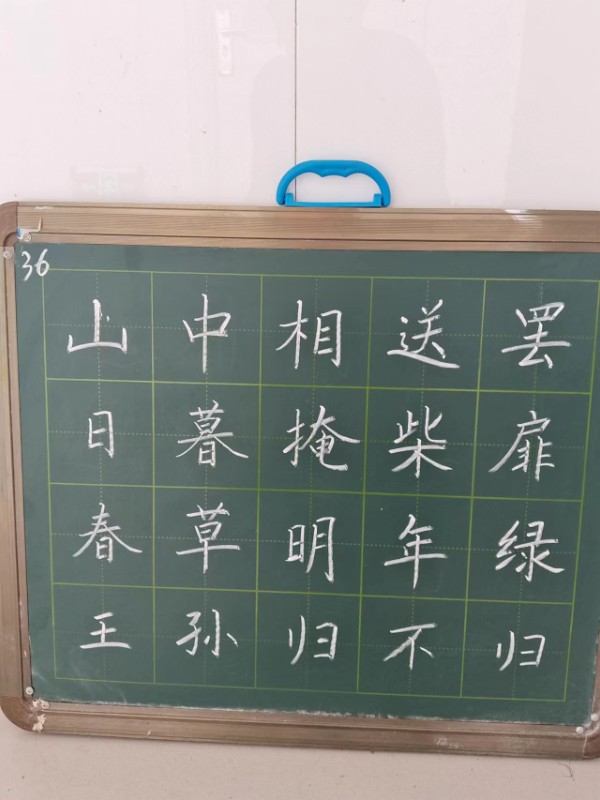 36
山中相送罢
日暮掩柴扉
春草明年绿
王孙归不归